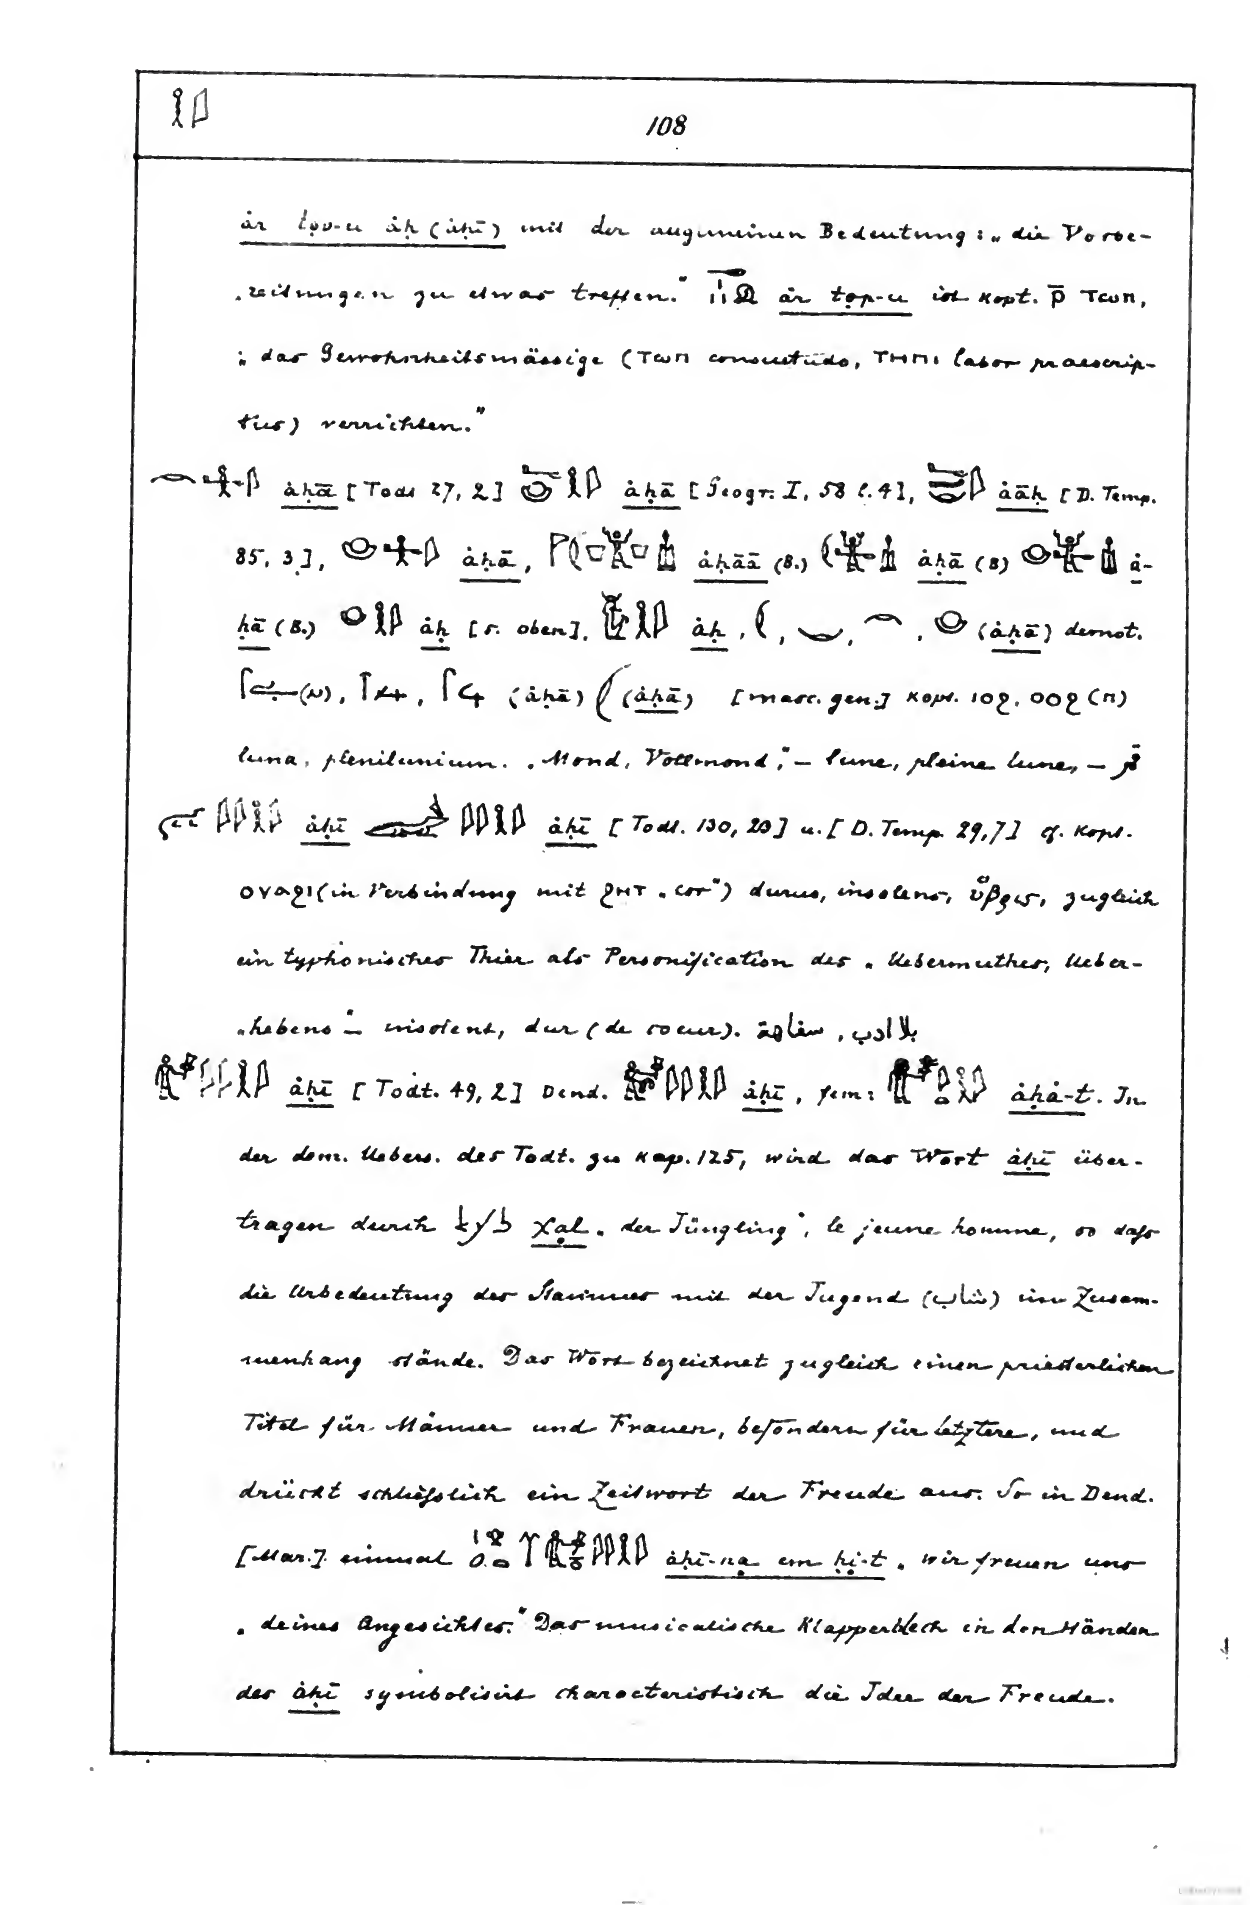 108
ȧr ṭp-u ȧḥ (ȧḥī) mit der allgemeinen Bedeutung: „die Vorbe-
„reitungen zu etwas treffen." ȧr ṭep-u ist kopt. ⲣ̄ ⲧⲱⲡ,
„das Gewohnheitsmässige (ⲧⲱⲡ consuetudo, ⲧⲏⲡⲓ labor praescrip-
tus) verrichten."
ȧḥā [Todt 27, 2] ȧḥā [Geogr. I, 58 l. 4], ȧāḥ [D. Temp.
85, 3], ȧḥā, ȧḥāā (B.) ȧḥā (B) ȧ-
ḥā (B.) ȧḥ [s. oben], ȧḥ, (ȧḥā) demot.
(ȧḥā) (ȧḥā) [masc. gen.] kopt. ⲓⲟϩ, ⲟⲟϩ (ⲡ)
luna, plenilunium. „Mond, Vollmond", – lune, pleine lune, –
ȧḥī ȧḥī [Todt. 130, 20] u. [D. Temp. 29, 7] cf. kopt.
ⲟⲩⲁϩⲓ (in Verbindung mit ϩⲏⲧ „cor") durus, insolens, ὕβρις, zugleich
ein typhonisches Thier als Personification des „Uebermuthes, Ueber-
„hebens" – insolent, dur (de coeur). سفاهة , بلا ادب
ȧḥī [Todt. 49, 2] Dend. ȧḥī, fem: ȧḥȧ-t. In
der dem. Uebers. des Todt. zu Kap. 125, wird das Wort ȧḥī über-
tragen durch χal „der Jüngling", le jeune homme, so daſs
die Urbedeutung des Stammes mit der Jugend (شباب) im Zusam-
menhang stände. Das Wort bezeichnet zugleich einen priesterlichen
Titel für Männer und Frauen, besonders für letztere, und
drückt schlieſslich ein Zeitwort der Freude aus. So in Dend.
[Mar.] einmal ȧḥī-na em ḥi-t „wir freuen uns
„deines Angesichtes." Das musicalische Klapperblech in den Händen
des ȧḥī symbolisirt charakteristisch die Idee der Freude.